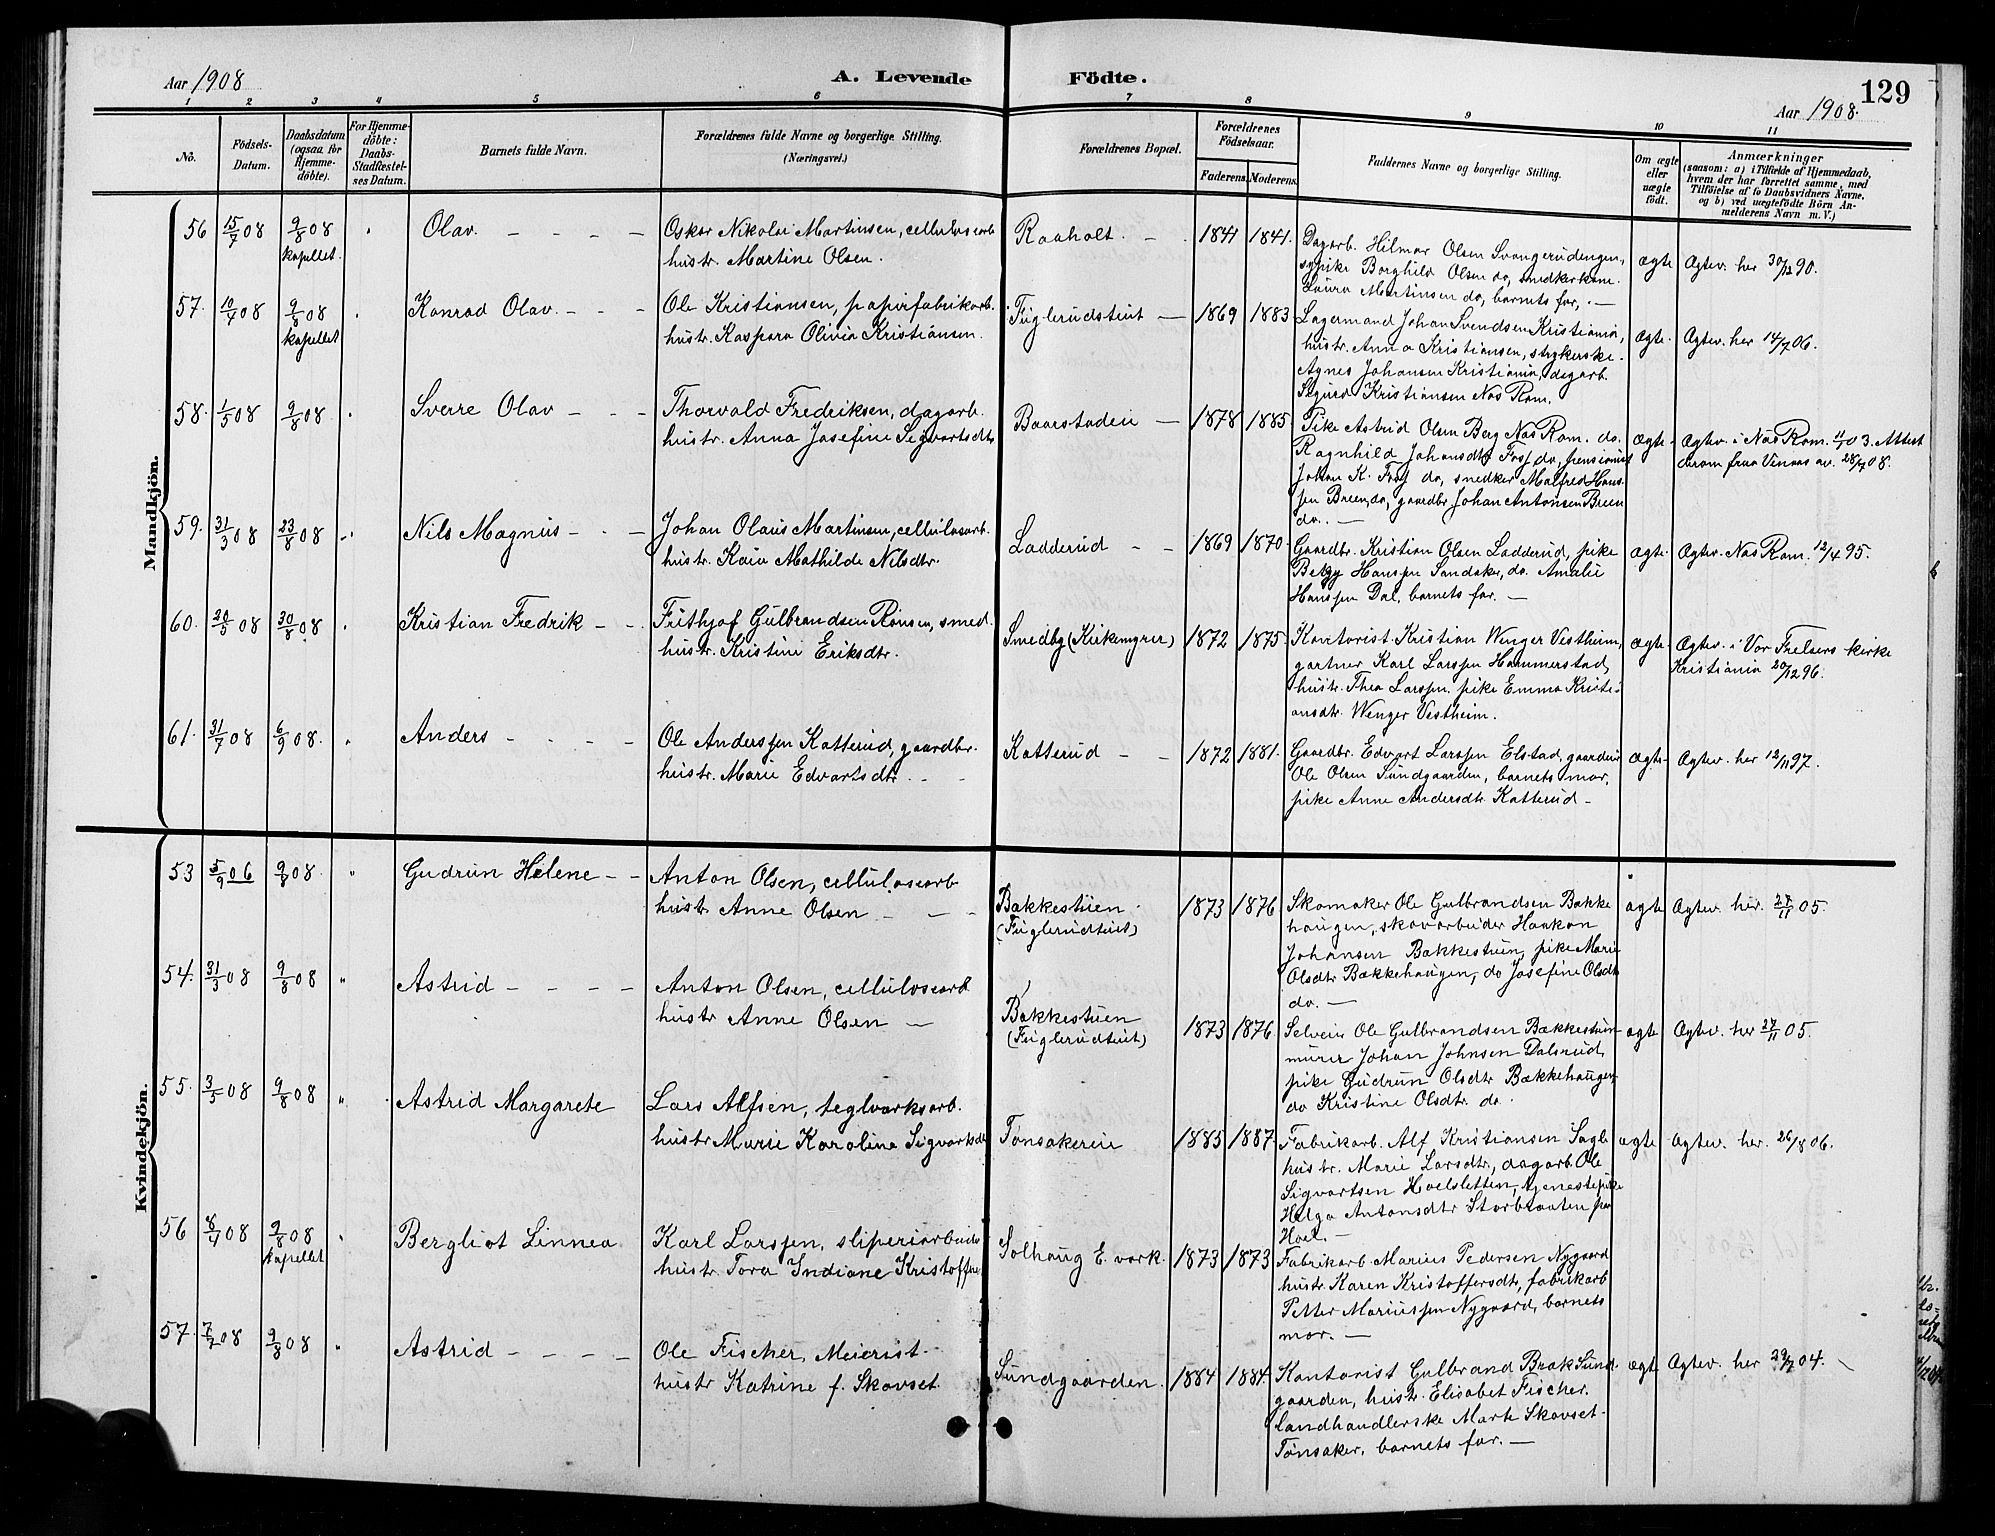 Aar 1908
A. Levende
Födte.
129
Aar 1908.
1 2 3 4 5 6 7 8 9 10 11
No.
Födsels-
Datum.
Daabsdatum
(ogsaa for
Hjemme-
döbte).
For Hjemme-
döbte:
Daabs-
Stadfæstel-
ses Datum.
Barnets fulde Navn.
Forældrenes fulde Navne og borgerlige Stilling.
(Næringsvei.)
Forældrenes Bopæl.
Forældrenes
Födselsaar.
Faderens. Moderens.
Faddernes Navne og borgerlige Stilling.
Om ægte
eller
uægte
födt.
Anmærkninger
(saasom: a) i Tilfælde af Hjemmedaab,
hvem der har forrettet samme, med
Tilföielse af to Daabsvidners Navne,
og b) ved uægtefödte Börn An-
melderens Navn m. V.)
Mandkjön.
56 15/7 08 9/8 08 Olav. Oskar Nikolai Martinsen, cellulosearb
kapellet. hustr. Martine Olsen.
Raaholt. 1841 1841.
Dagarb. Hilmar Olsen Svangerudengen,
sypike Borghild Olsen do, snedkerkone
Laura Martinsen do, barnets far, . —
ægte Ægtev. her 30/12 90.
57. 10/4 08 9/8 08 Konrad Olav. Ole Kristiansen, papirfabrikarb.
kapellet hustr. Kaspara Olivia Kristiansen.
Fuglerudstut — 1869 1883
Lagermand Johan Svendsen Kristiania,
hustr. Anna Kristiansen, strykerske
Agnes Johansen Kristiania, dagarb.
Sigurd Kristiansen Næs Rom.
ægte. Ægtev. her 14/7 06.
58. 1/5 08 9/8 08 Sverre Olav Thorvald Fredriksen, dagarb.
hustr. Anna Josefine Sigvartsdtr
Baarstadeie — 1878 1885
Pike Astrid Olsen Berg Næs Rom. do.
Ragnhild Johansdtr Fosf do, pensionist
Johan K. Fosf do, snedker Malfred Hans-
sen Breen do, gaardbr Johan Antonsen Breen
do. . —
ægte. Ægtev. i Næs Rom. 11/10 3. Attest
derom fraa Vinaas av. 28/7 08.
59. 31/3 08 23/8 08 Nils Magnus Johan Olaus Martinsen, cellulosarb.
hustr. Kaia Mathilde Nilsdtr.
Ladderud 1869 1870.
Gaardbr. Kristian Olsen Ladderud, pike
Betzy Hanssen Sandaker, do. Amalie
Hanssen Dal, barnets far. —
ægte. Ægtev. Næs Rom. 12/4 95.
60. 20/5 08 30/8 08 Kristian Fredrik Frithjof Gulbrandsen Rönsen, smed.
hustr. Kristine Eriksdtr.
Smedby (Kirkemyrer) 1872 1875
Kontorist Kristian Wenger Vestheim,
gartner Karl Larssen Hammerstad,
hustr. Thea Larssen, pike Emma Kristi-
ansdtr. Wenger Vestheim.
ægte. Ægtev. i Vor Frelsers kirke
Kristiania 20/12 96.
61. 31/7 08 6/9 08. Anders Ole Anderssen Katterud, gaardbr.
hustr. Marie Edvartsdtr.
Katterud 1872 1881.
Gaardbr. Edvart Larssen Elstad, gaardeier
Ole Olsen Sundgaarden, barnets mor,
pike Anne Andersdtr. Katterud —
ægte. Ægtev. her 12/11 97.
Kvindekjön.
53 5/9 06 9/8 08. Gudrun Helene Anton Olsen, cellulosearb
hustr. Anne Olsen
Bakkestuen
(Fuglerudstut)
1873 1876
Skomaker Ole Gulbrandsen Bakke
haugen, skovarbeider Haakon
Johansen Bakkestuen, pike Marie
Olsdtr. Bakkehaugen, do Josefine Olsdtr
do. —
ægte Ægtev. her. 27/11 05.
54. 31/3 08 9/8 08 Astrid Anton Olsen, cellulosearb
hustr Anne Olsen —
Bakkestuen
(Fuglerudstut)
1873 1876
Selveier Ole Gulbrandsen Bækkestuen
murer Johan Johnsen Dalsrud,
pike Gudrun Olsdtr Bækkehaugen,
do Kristine Olsdtr. do.
ægte Ægtev. her 27/11 05.
55. 3/5 08 9/8 08 Astrid Margarete Lars Alfsen, teglværksarb.
hustr Marie Karoline Sigvartsdtr
Tønsakereie 1885 1887
Fabrikarb. Alf Kristiansen Sagli
hustr. Marie Larsdtr., dagarb. Ole
Sigvartsen Hoelsletten, tjenestepike
Helga Antonsdtr Storbraaten paa
Hoel. —
ægte Ægtev. her. 26/8 06.
56 8/4 08 9/8 08 Bergliot Linnea Karl Larssen, sliperiarbeider
kapellet hustr. Tora Indiane Kristoffers
Solhaug E. værk. 1873 1873
Fabrikarb Marius Pedersen Nygaard
hustr Karen Kristoffersdtr, fabrikarb
Petter Mariussen Nygaard, barnets
mor. —
57. 7/7 08 9/8 08 Astrid Ole Fischer, Meierist.
hustr Katrine f. Skovset.
Sundgaarden. 1884 1884
Kontorist Gulbrand Brak Sund-
gaarden, hustr. Elisabet Fischer.
landhandlerske Marte Skovset
Tønsaker, barnets far. —
ægte Ægtev. her 29/7 04.